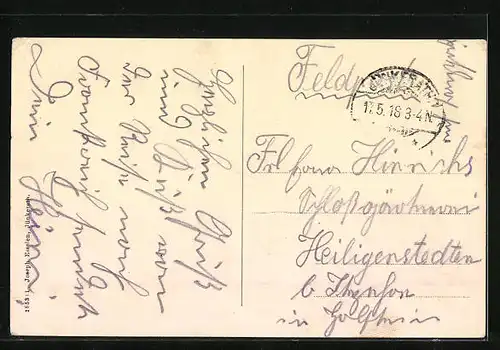 Herzlichen Gruß
von
der Reise nach
Frankreich sendet
Dein
Feldpost
JÜNKERATH
17.5.18 3-4N
Frl Hinrichs
Schloßgärtnerei
Heiligenstedten
b Itzehoe
in Holstein